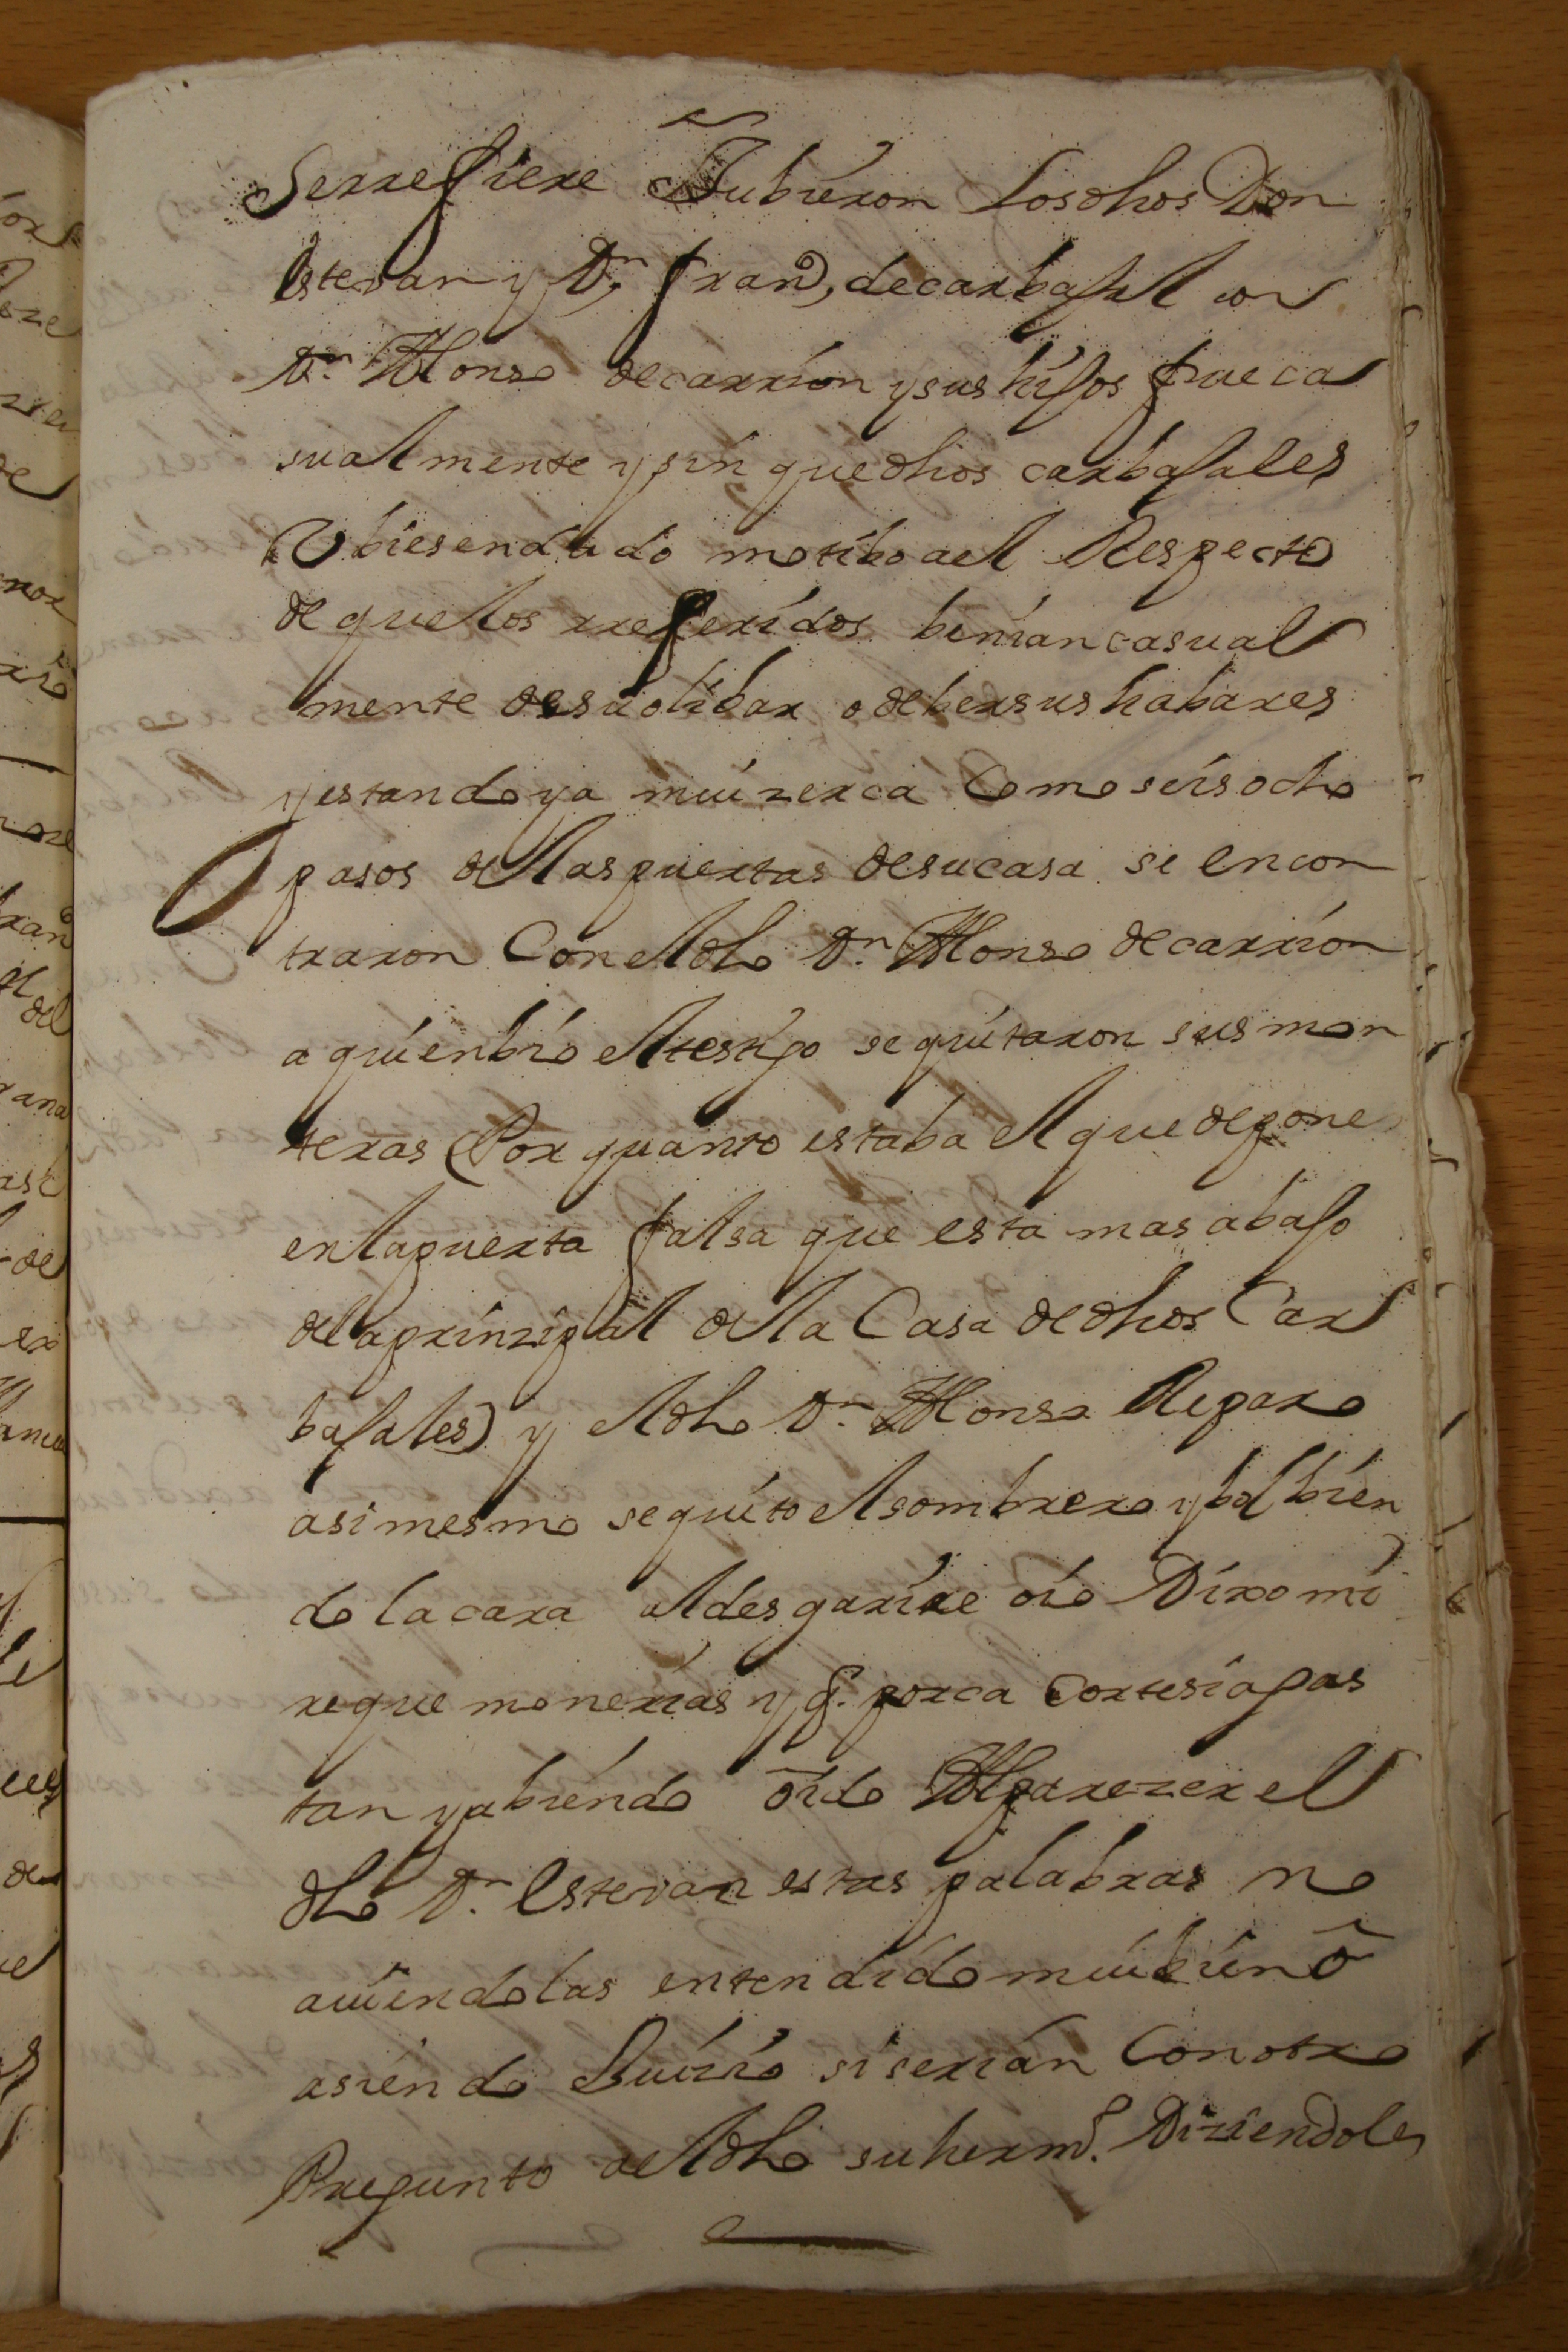 Serrefiere Tubieron Losdhos Don
Estevan y Dn, Frano, decarbajal con
Dn. Alonso decarrion ysus hijos fue ca
sualmente ysin quedhos carbajales
Ubiesendado motibo ael Respecto
de quelos rreferidos beniancasual
mente desuolibar o debersus habares
yestandoya muizerca Como seisocho
pasos delaspuertas desucasa se encon
traron Con eldho Dn. Alonso decarrion
a quienbio eltestigo sequitaron sus mon
teras (Por quanto estaba elquedepone
enlapuerta falsa que esta mas abajo
delaprinzipal dela Casa dedhos Car
bajales) y eldho Dn. Alonso Reparo
asimesmo sequito elsombrero ybolbien
do lacara aldesgarire oio Dixo mi
reque monerias y q. porca cortesiagas
tan yabiendo oido Alparezer el
dho Dn. Estevan estas palabras no
auiendolas entendido muibien o
asiendo Juizio siserian Conotro
Pregunto aeldho suhermo. Diziendole